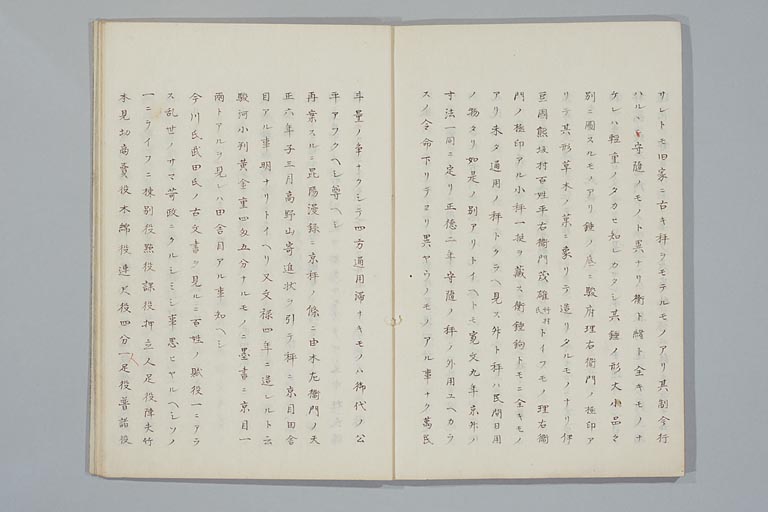 サレトモ旧家ニ古キ秤ヲモテルモノアリ其制今行
ハル守隨ノモノト異ナリ衡ト緒ト全キモノナ
ケレハ軽重ノタカヒ知レカタシ其錘ノ形大小品々
別ニ圖スルモノアリ錘ノ底ニ駿府理右衛門ノ極印ア
リテ其形草木ノ菓ニ象リテ造リタルモノナリ伊
豆國熊坂村百姓平右衛門茂雄竹村氏トイフモノ理右衛
門ノ極印アル小秤一挺ヲ蔵ス衡錘鉤トモニ全キモノ
アリ未タ通用ノ秤トクラヘ見ス外ト秤ハ民間日用
ノ物タリ如是ノ別アリトイヘトモ寛文九年京外ノ
寸法一同ニ定リ正徳二年守隨ノ秤ノ外用ユヘカラ
スノ令命下リテヨリ異ヤウノモノアル事ナク萬民
斗量ノ争ナクシテ四方通用滞ナキモノハ御代ノ公
平アフクヘシ尊ヘシ
再案スルニ昆陽漫録ニ京秤ノ條ニ由木左衛門ノ天
正六年子三月高野山寄進状ヲ引テ秤ニ京目田舎
目アル事明ナリトイヘリ又文禄四年ニ造レルト云
駿河小判黄金重四匁五分ナルモノニ墨書ニ京目一
兩トアルヲ見レハ田舎目アル事知ヘシ
今川氏武田氏ノ古文書ヲ見ルニ百姓ノ賦役一ニアラ
ス乱世ノサマ苛政ニクルシミシ事思ヒヤルヘシソノ
一二ライフニ棟別役點役課役押立人足役陣夫竹
木見切商賣役木綿役連尺役四分一足役普請役